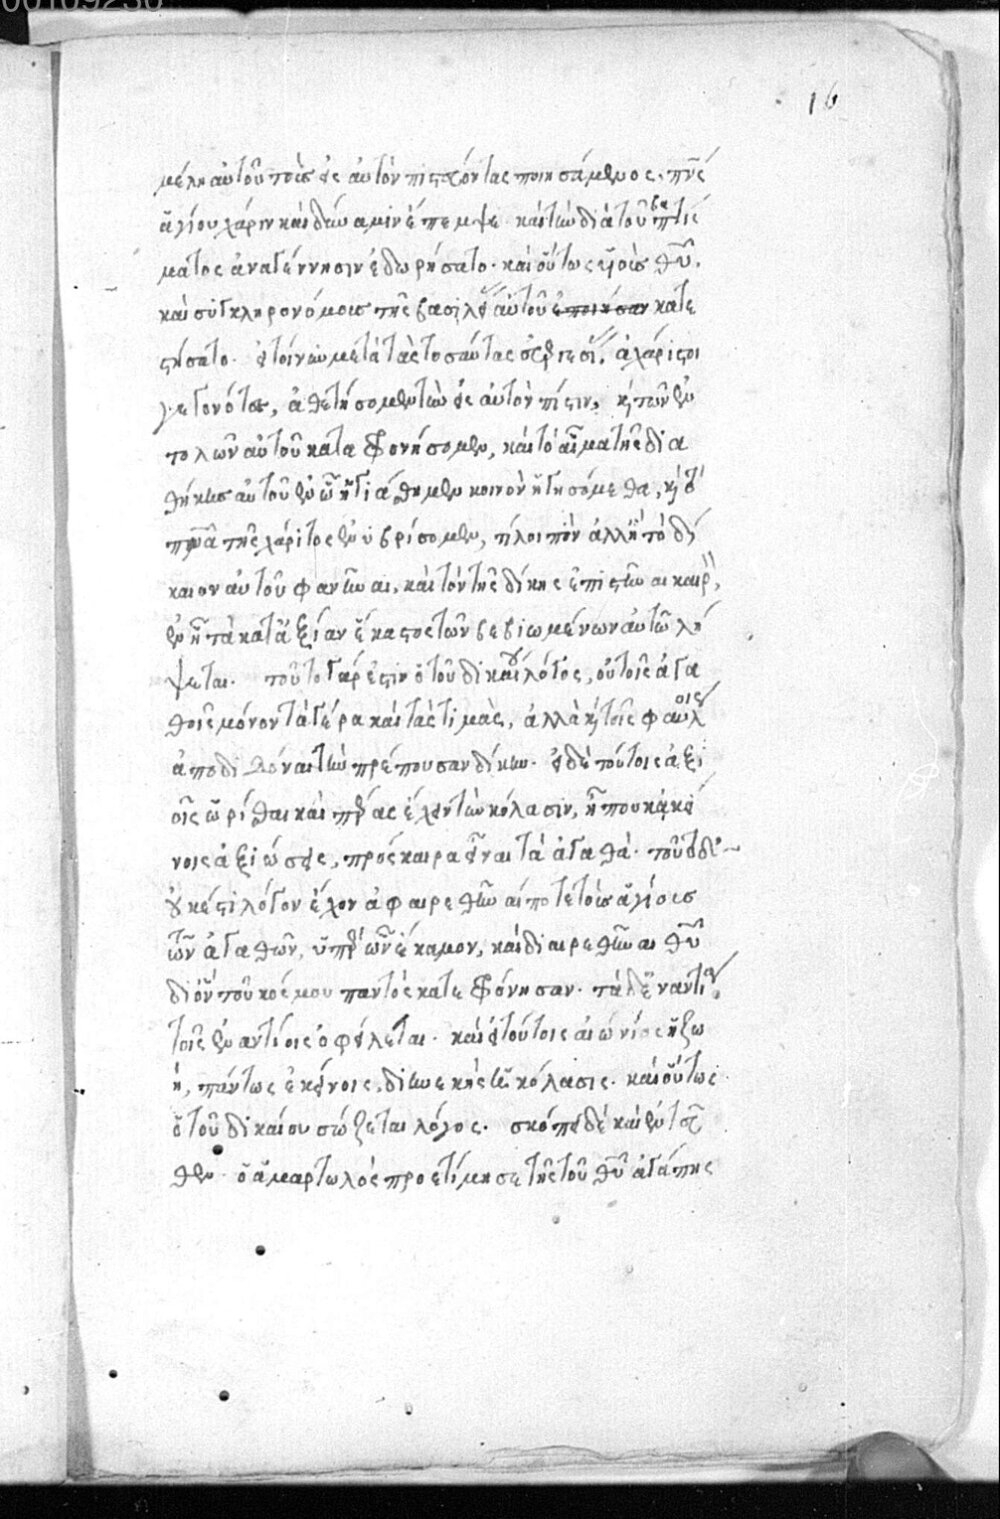 00109230
16
μέλη αὐτοῦ τοὺς εἰς αὐτὸν πιστεύοντας ποιησάμενος. πνς
ἁγίου χάριν καὶ δύναμιν ἔπεμψε καὶ τὴν διὰ τοῦ βαπτίσ
ματος ἀναγέννησιν ἐδωρήσατο. καὶ οὕτως υἱοὺς θυ.
καὶ συγκληρονόμους τῆς βασιλεί αὐτοῦ ἐποιήσαν κατε
στήσατο. εἰ τοίνυν μετὰ τὰς τοσαύτας ἀχάριστοι
γεγονότες, ἀθετήσομεν τὴν εἰς αὐτὸν πίστιν, κ τῶν ἐν
τολῶν αὐτοῦ καταφρονήσομεν, καὶ τὸ αἷμα τῆς δια
θήκης αὐτοῦ ἐν ᾧ ἡγιάσθημεν κοινὸν ἡγησόμεθα, κ τὸ
πνα τῆς χάριτος ἐνυβρίσομεν, τί λοιπὸν ἀλλ' ἢ τὸ δί
καιον αὐτοῦ φανῆναι. καὶ τὸν τῆς δίκης ἐπιστῆναι καιρ,
ἐν ᾗ τὰ κατ' ἀξίαν ἕκαστος τῶν βεβιωμένων αὐτῷ λή
ψεται. τοῦτο γάρ ἐστιν ὁ τοῦ δικαίου λόγος, οὐ τοῖς ἀγα
θοῖς μόνον τὰ γέρα καὶ τὰς τιμὰς, ἀλλὰ κ τοῖς φαύλοις
ἀποδιδόναι τὴν πρέπουσαν δίκην. εἰ δὲ τούτοις ἀξι
οῖς ὡρίσθαι καὶ πέρας ἔχειν τὴν κόλασιν, ἤπου κἀκεί
νοις ἀξιώσεις, πρόσκαιρα εἶναι τὰ ἀγαθά. τοῦτο δὲ
οὐκ ἔστι λόγον ἔχον ἀφαιρεθῆναί ποτε τοὺς ἁγίους
τῶν ἀγαθῶν, ὑπὲρ ὧν ἔκαμον, καὶ διαιρεθῆναι θυ
δι' ὃν τοῦ κόσμου παντὸς κατεφρόνησαν. τὰ δ' ἐναντία
τοῖς ἐναντίοις ὀφείλεται. καὶ εἰ τούτοις αἰώνιος ἡ ζω
ή, πάντως ἐκείνοις, διηνεκὴς ἡ κόλασις. καὶ οὕτως
ὁ τοῦ δικαίου σώζεται λόγος. σκόπει δὲ καὶ ἐντεῦ
θεν. ὁ ἁμαρτωλὸς προετίμησε τῆς τοῦ θυ ἀγάπης